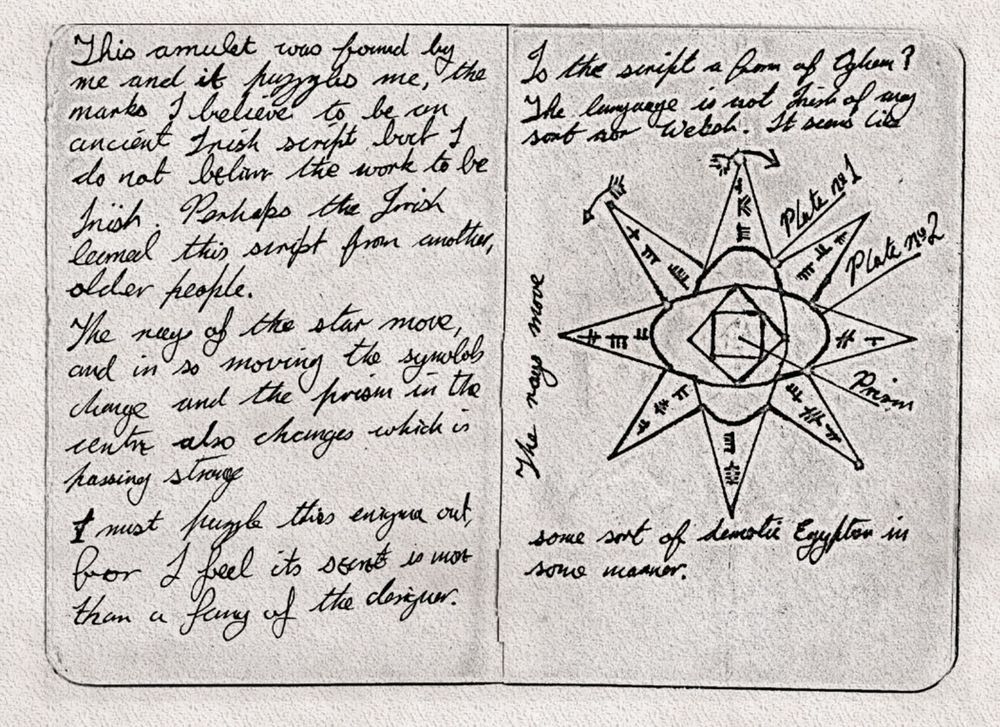 This amulet was found by
me and it puzzles me, the
marks I believe to be an
ancient Irish script but I
do not believe the work to be
Irish. Perhaps the Irish
learned this script from another,
older people.
The rays of the star move,
and in so moving the symbols
change and the prism in the
centre also changes which is
passing strange
I must puzzle this enigma out,
for I feel its secret is more
than a fancy of the designer.
Is the script a form of Ogham?
The language is not Irish of any
sort nor Welsh. It seems like
Plate № 1
Plate № 2
The rays move
Prism
some sort of demotic Egyptian in
some manner.